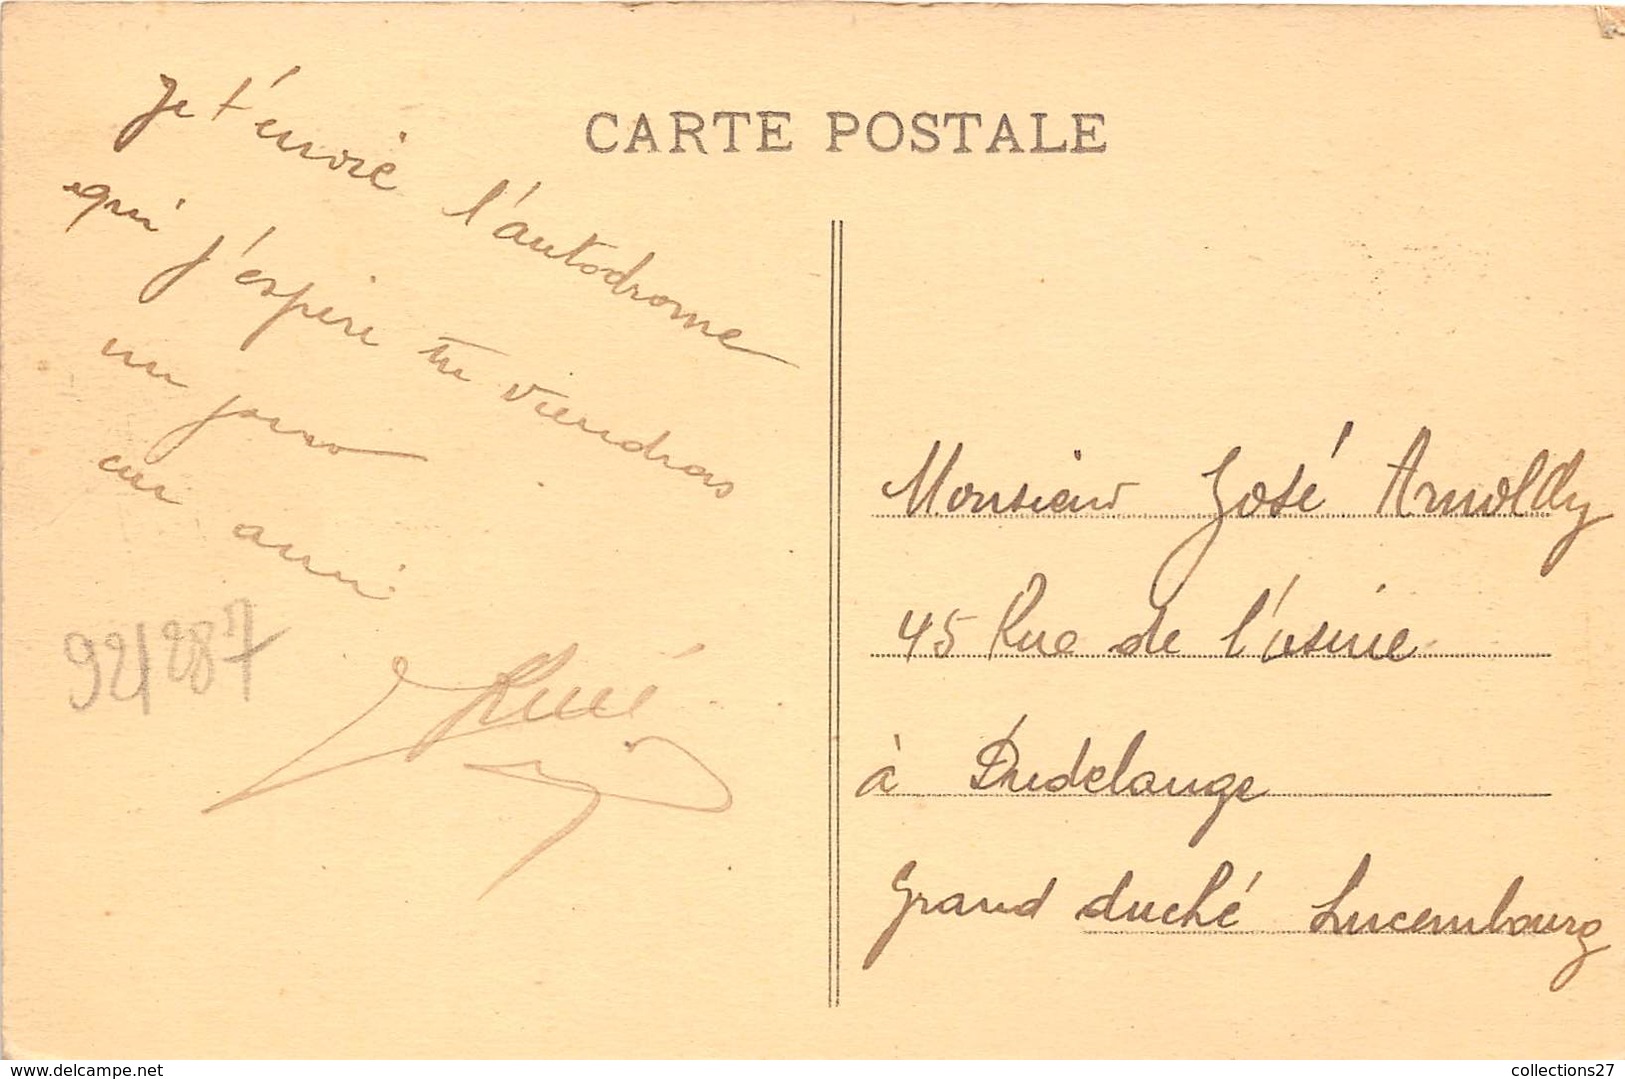 CARTE POSTALE
Je t'envoie l'autodrome
qui j'espère tu viendras
un jour
un ami
René
92/287
Monsieur José Arnoldy
45 Rue de l'usine
à Dudelange
Grand duché Luxembourg
www.delcampe.net
collections27